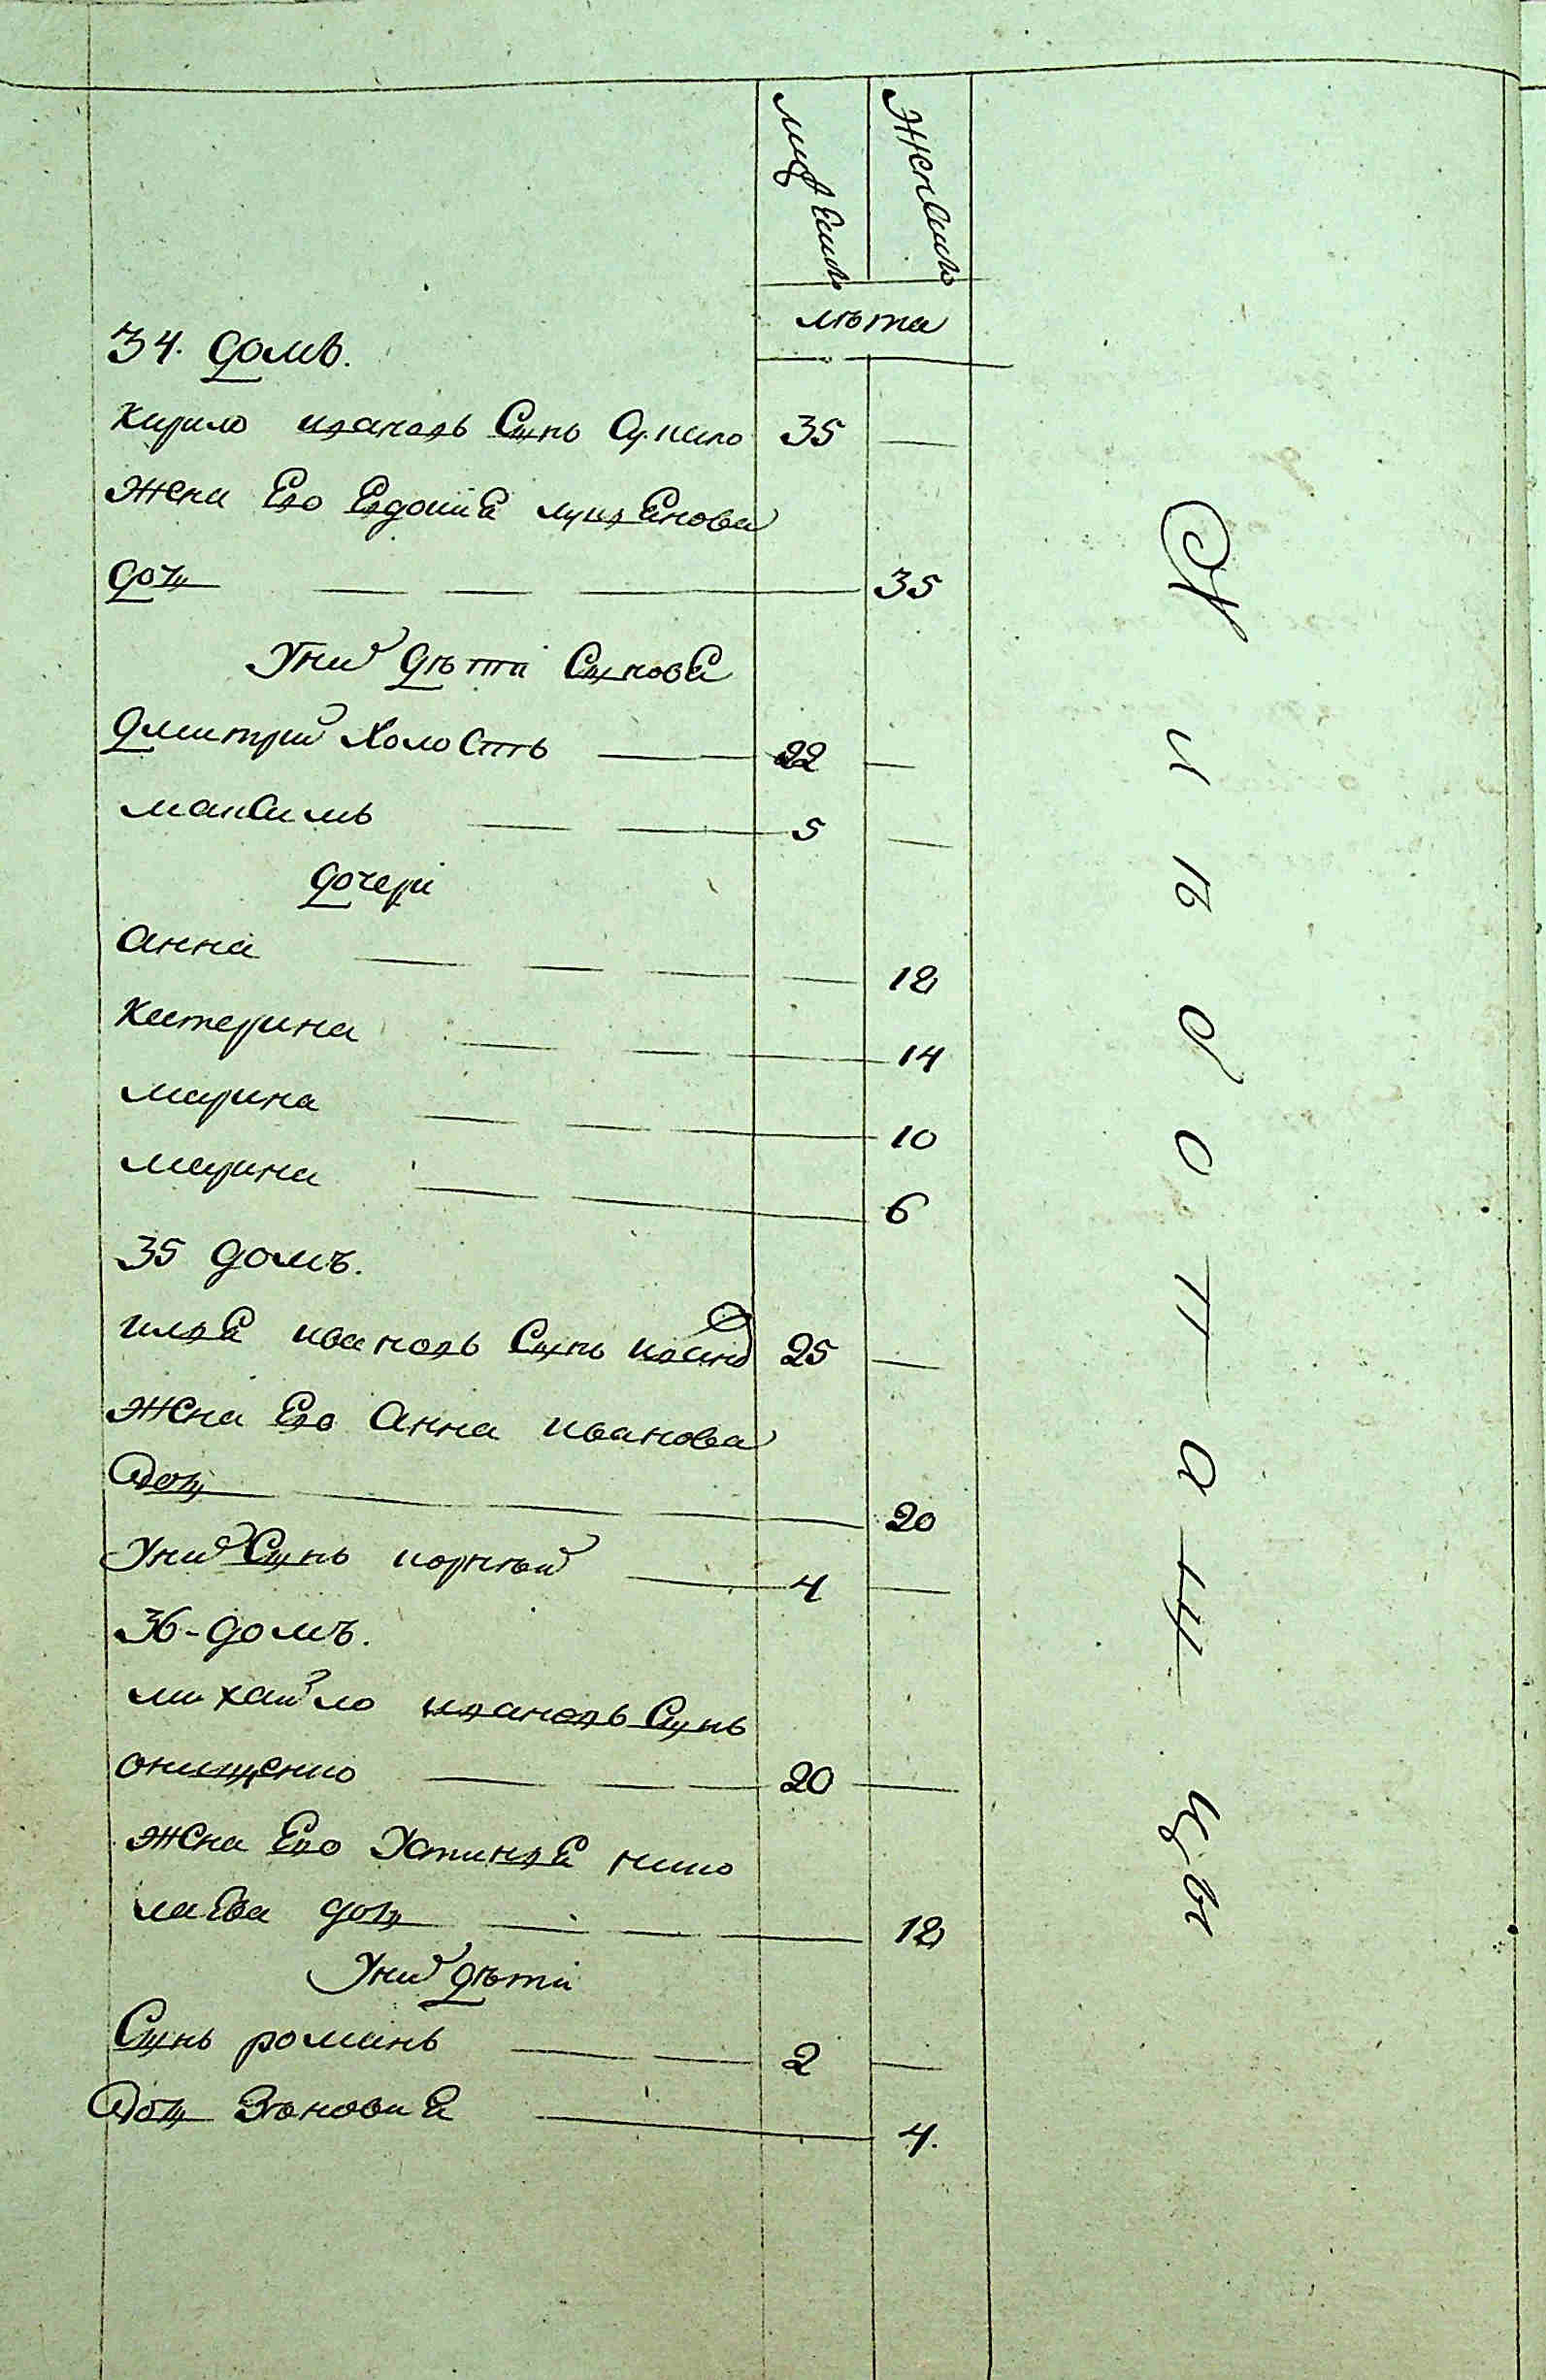 мужеска
женска
лѣта
34. домъ.
кирило ивановъ Синъ
35
жена Его Евдокиѣ лукѣянова
дочь
35
У них дѣти Синовѣ
дмитрий холостъ
22
максимъ
5
дочери
анна
12
катерина
14
марина
10
марина
6
35 домъ.
илѣя ивановъ Синъ
25
жена Его Анна иванова
дочь
20
У них Синъ корнѣй
4
36-домъ.
михайло ивановъ Синъ
онищенко
20
жена Его Устинѣя нико
лаева дочь
12
У них дѣти
Синъ романъ
2
дочь Зѣновиѣ
4.